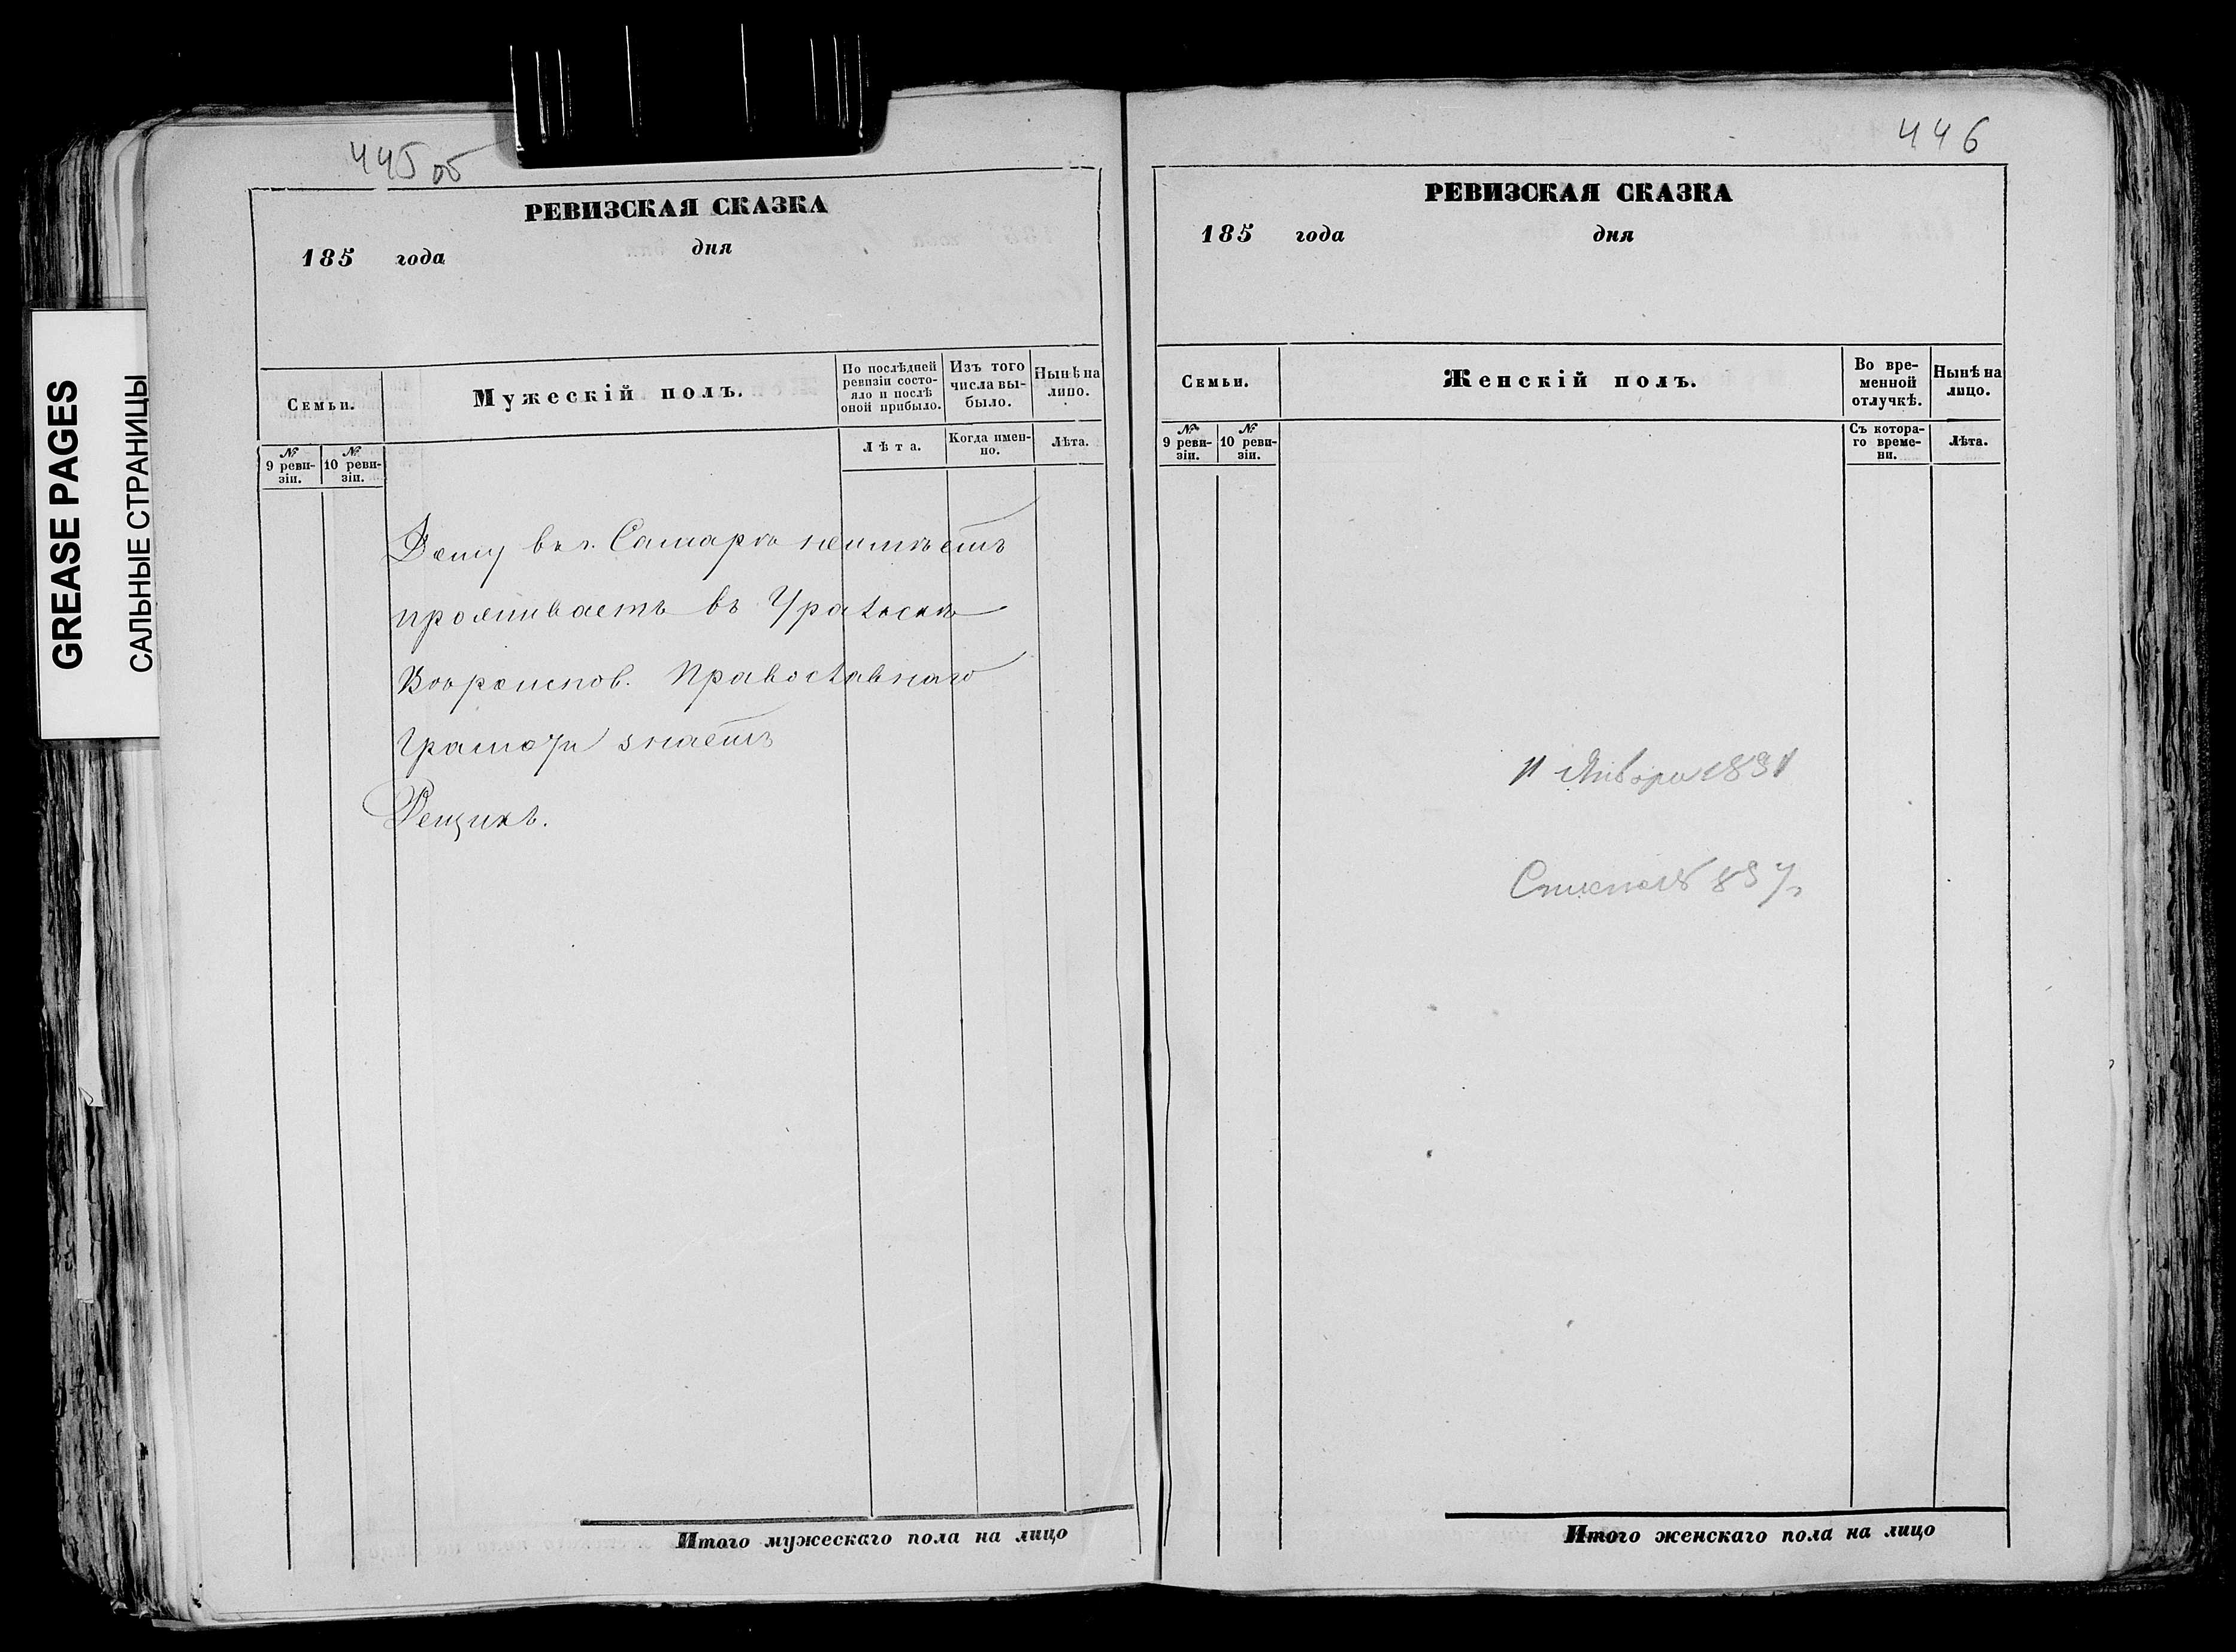 445об
РЕВИЗСКАЯ СКАЗКА
185 года дня
Семьи.
Мужескій полъ.
По послѣдней ревизіи состо-
яло и послѣ оной прибыло.
Изъ того числа вы-
было.
Нынѣ на лицо.
№ 9 реви-
зіи.
№ 10 реви-
зіи.
Лѣта.
Когда имен-
но.
Лѣта.
Дому въ г. Самарѣ неимѣетъ
проживаетъ въ Уральскѣ
Вѣроиспов. Православнаго
Грамоту знаетъ
Итого мужескаго пола на лицо
446
РЕВИЗСКАЯ СКАЗКА
185 года дня
Семьи.
Женскій полъ.
Во вре-
менной
отлучкѣ.
Нынѣ на
лицо.
№ 9 реви-
зіи.
№ 10 реви-
зіи.
Съ котора-
го време-
ни.
Лѣта.
11 Января 1891
Итого женскаго пола на лицо
GREASE PAGES
САЛЬНЫЕ СТРАНИЦЫ